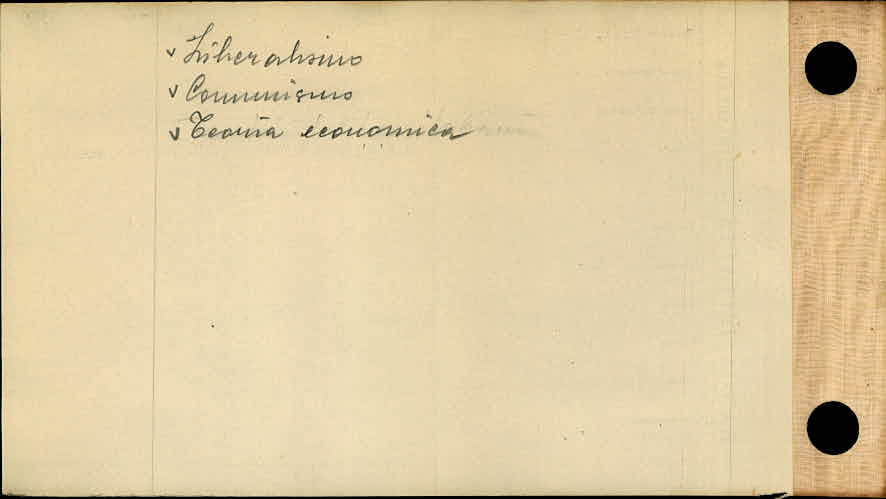 ✓ Liberalismo
✓ Comunismo
✓ Teoria economica